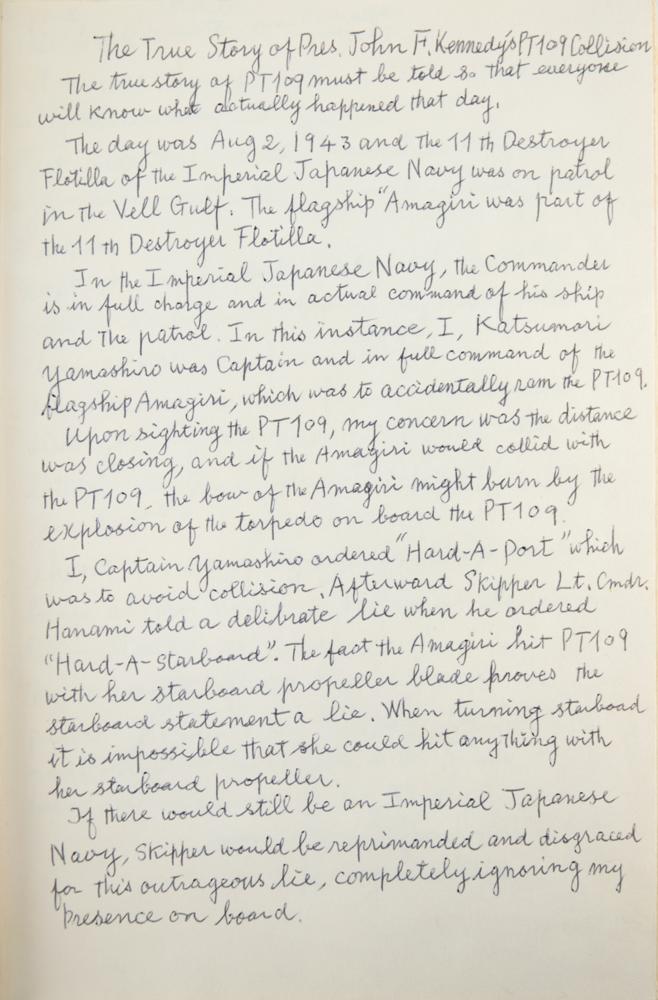 The True Story of Pres. John F. Kennedy's PT109 Collision
The true story of PT109 must be told so that everyone
will know what actually happened that day.
The day was Aug 2, 1943 and the 11th Destroyer
Flotilla of the Imperial Japanese Navy was on patrol
in the Vell Gulf. The flagship "Amagiri was part of
the 11th Destroyer Flotilla.
In the Imperial Japanese Navy, the Commander
is in full charge and in actual command of his ship
and the patrol. In this instance, I, Katsumori
Yamashiro was Captain and in full command of the
flagship Amagiri, which was to accidentally ram the PT109.
Upon sighting the PT109, my concern was the distance
was closing, and if the Amagiri would collid with
the PT109, the bow of the Amagiri might burn by the
explosion of the torpedo on board the PT109.
I, Captain Yamashiro ordered "Hard-A-Port" which
was to avoid collision. Afterward Skipper Lt. Cmdr.
Hanami told a delibrate lie when he ordered
"Hard-A-Starboard". The fact the Amagiri hit PT109
with her starboard propeller blade proves the
starboard statement a lie. When turning starboad
it is impossible that she could hit anything with
her starboard propeller.
If there would still be an Imperial Japanese
Navy, Skipper would be reprimanded and disgraced
for this outrageous lie, completely ignoring my
presence on board.